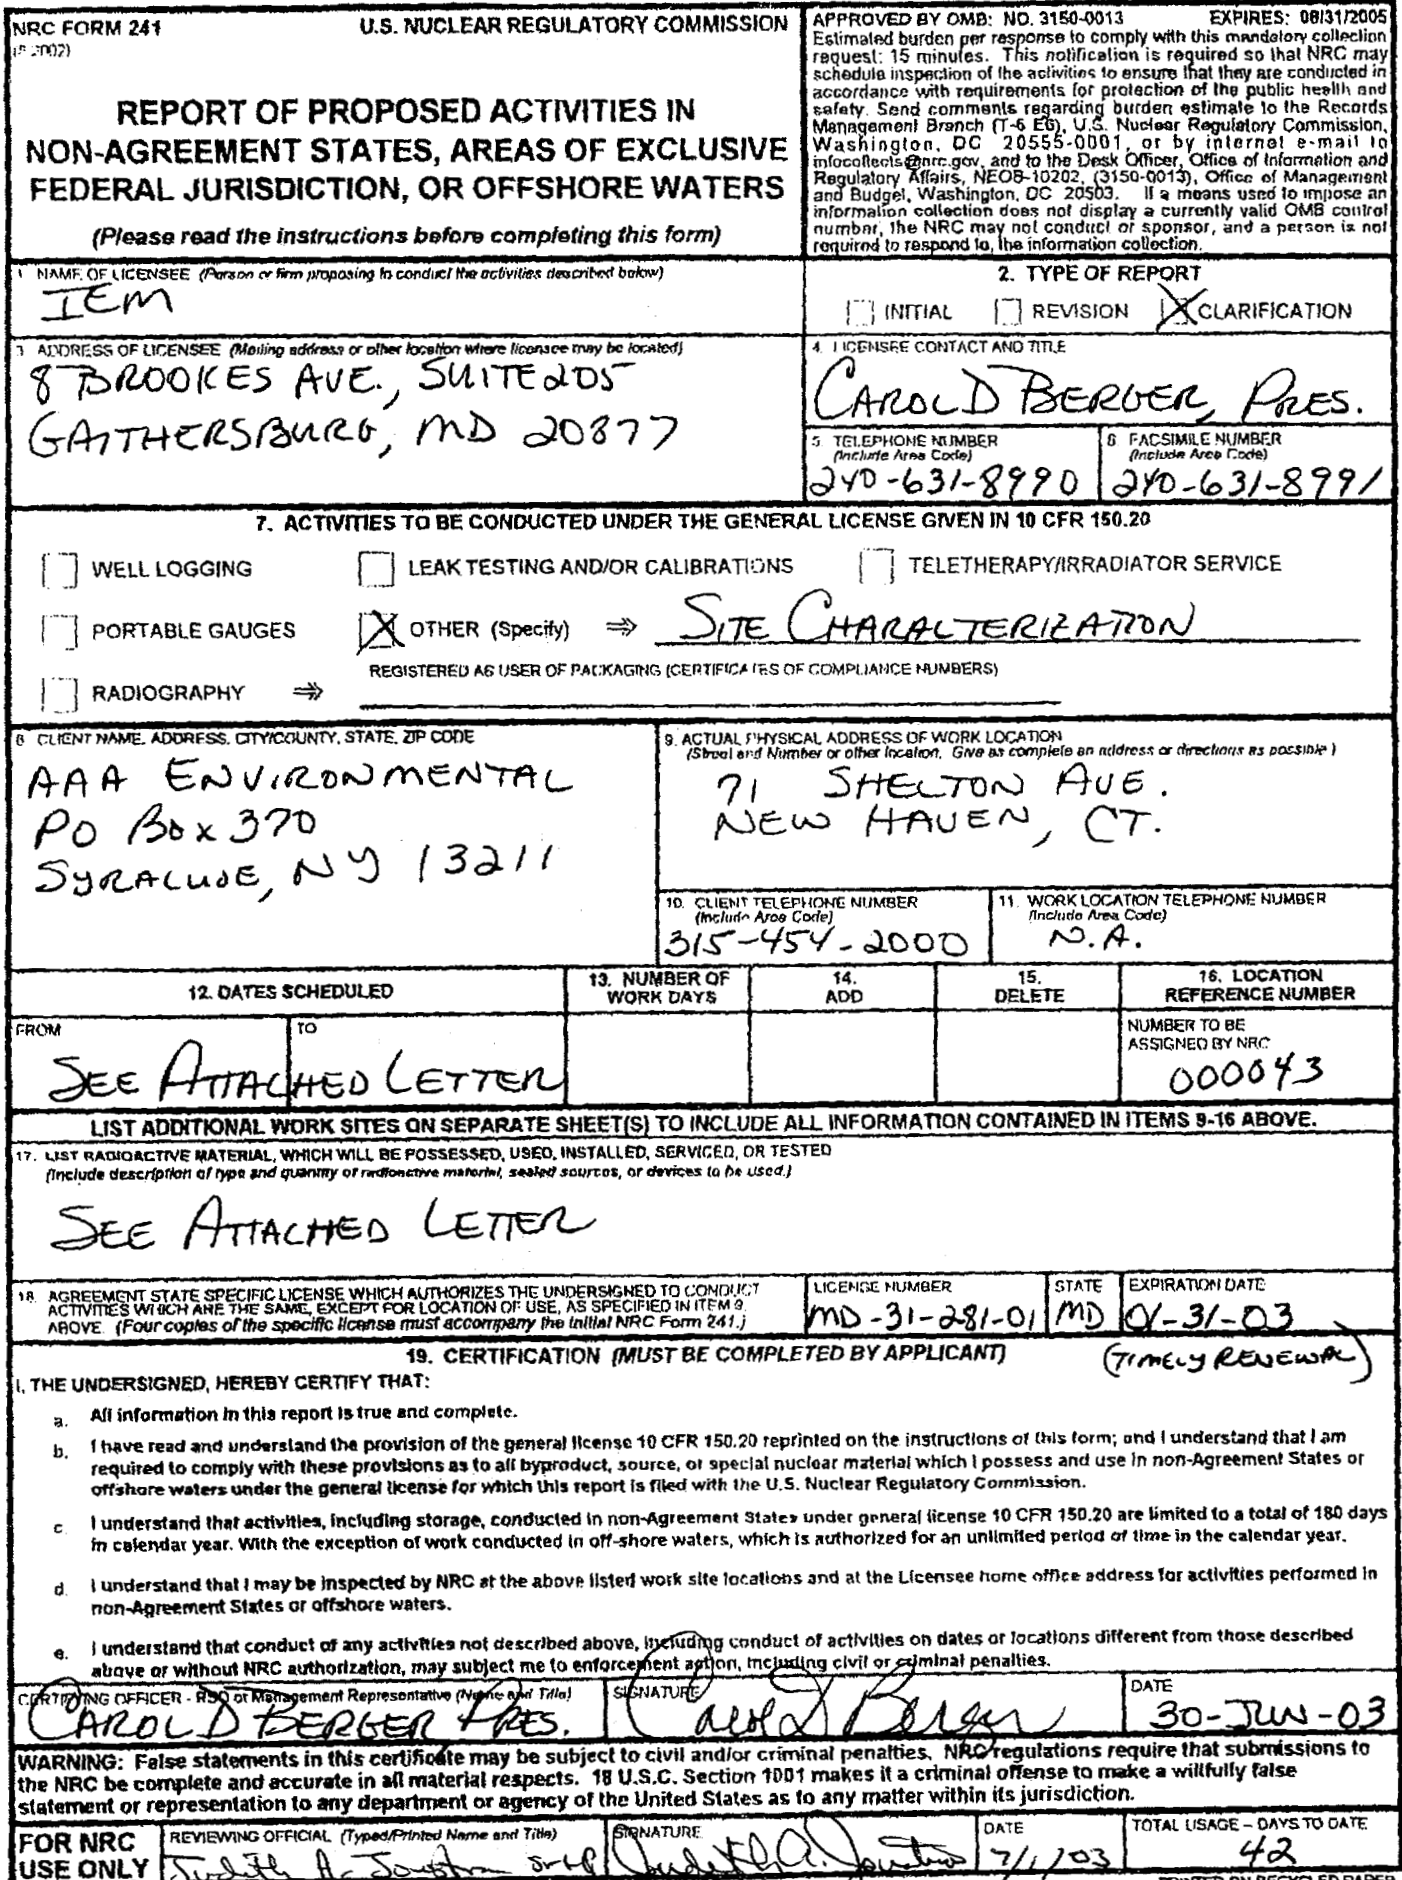 NRC FORM 241
U.S. NUCLEAR REGULATORY COMMISSION
REPORT OF PROPOSED ACTIVITIES IN
NON-AGREEMENT STATES, AREAS OF EXCLUSIVE
FEDERAL JURISDICTION, OR OFFSHORE WATERS
(Please read the instructions before completing this form)
APPROVED BY OMB: NO. 3150-0013 EXPIRES: 08/31/2005
Estimated burden per response to comply with this mandatory collection
request: 15 minutes. This notification is required so that NRC may
schedule inspection of the activities to ensure that they are conducted in
accordance with requirements for protection of the public health and
safety. Send comments regarding burden estimate to the Records
Management Branch (T-6 E6), U.S. Nuclear Regulatory Commission,
Washington, DC 20555-0001, or by internet e-mail to
infocollects@nrc.gov, and to the Desk Officer, Office of Information and
Regulatory Affairs, NEOB-10202, (3150-0013), Office of Management
and Budget, Washington, DC 20503. If a means used to impose an
information collection does not display a currently valid OMB control
number, the NRC may not conduct or sponsor, and a person is not
required to respond to, the information collection.
1 NAME OF LICENSEE (Person or firm proposing to conduct the activities described below)
IEM
2. TYPE OF REPORT
INITIAL REVISION CLARIFICATION
3 ADDRESS OF LICENSEE (Mailing address or other location where licensee may be located)
8 BROOKES AVE., SUITE 205
GAITHERSBURG, MD 20877
4. LICENSEE CONTACT AND TITLE
CAROL D BERGER, PRES.
5 TELEPHONE NUMBER
(Include Area Code)
240-631-8990
6 FACSIMILE NUMBER
(Include Area Code)
240-631-8991
7. ACTIVITIES TO BE CONDUCTED UNDER THE GENERAL LICENSE GIVEN IN 10 CFR 150.20
WELL LOGGING LEAK TESTING AND/OR CALIBRATIONS TELETHERAPY/IRRADIATOR SERVICE
PORTABLE GAUGES OTHER (Specify) ⇒ SITE CHARACTERIZATION
REGISTERED AS USER OF PACKAGING (CERTIFICATES OF COMPLIANCE NUMBERS)
RADIOGRAPHY ⇒
8 CLIENT NAME, ADDRESS, CITY/COUNTY, STATE, ZIP CODE
AAA ENVIRONMENTAL
PO BOX 370
SYRACUSE, NY 13211
9. ACTUAL PHYSICAL ADDRESS OF WORK LOCATION
(Street and Number or other location. Give as complete an address or directions as possible)
71 SHELTON AVE.
NEW HAVEN, CT.
10. CLIENT TELEPHONE NUMBER
(Include Area Code)
315-454-2000
11. WORK LOCATION TELEPHONE NUMBER
(Include Area Code)
N.A.
12. DATES SCHEDULED
13. NUMBER OF
WORK DAYS
14.
ADD
15.
DELETE
16. LOCATION
REFERENCE NUMBER
FROM TO
SEE ATTACHED LETTER
NUMBER TO BE
ASSIGNED BY NRC
000043
LIST ADDITIONAL WORK SITES ON SEPARATE SHEET(S) TO INCLUDE ALL INFORMATION CONTAINED IN ITEMS 9-16 ABOVE.
17. LIST RADIOACTIVE MATERIAL, WHICH WILL BE POSSESSED, USED, INSTALLED, SERVICED, OR TESTED
(Include description of type and quantity of radioactive material, sealed sources, or devices to be used.)
SEE ATTACHED LETTER
18. AGREEMENT STATE SPECIFIC LICENSE WHICH AUTHORIZES THE UNDERSIGNED TO CONDUCT
ACTIVITIES WHICH ARE THE SAME, EXCEPT FOR LOCATION OF USE, AS SPECIFIED IN ITEM 9
ABOVE. (Four copies of the specific license must accompany the initial NRC Form 241.)
LICENSE NUMBER
MD-31-281-01
STATE
MD
EXPIRATION DATE
01-31-03
(TIMELY RENEWAL)
19. CERTIFICATION (MUST BE COMPLETED BY APPLICANT)
I, THE UNDERSIGNED, HEREBY CERTIFY THAT:
a. All information in this report is true and complete.
b. I have read and understand the provision of the general license 10 CFR 150.20 reprinted on the instructions of this form; and I understand that I am
required to comply with these provisions as to all byproduct, source, or special nuclear material which I possess and use in non-Agreement States or
offshore waters under the general license for which this report is filed with the U.S. Nuclear Regulatory Commission.
c. I understand that activities, including storage, conducted in non-Agreement States under general license 10 CFR 150.20 are limited to a total of 180 days
in calendar year. With the exception of work conducted in off-shore waters, which is authorized for an unlimited period of time in the calendar year.
d. I understand that I may be inspected by NRC at the above listed work site locations and at the Licensee home office address for activities performed in
non-Agreement States or offshore waters.
e. I understand that conduct of any activities not described above, including conduct of activities on dates or locations different from those described
above or without NRC authorization, may subject me to enforcement action, including civil or criminal penalties.
CERTIFYING OFFICER - RSO or Management Representative (Name and Title)
CAROL D BERGER PRES.
SIGNATURE
Carol D Berger
DATE
30-JUN-03
WARNING: False statements in this certificate may be subject to civil and/or criminal penalties. NRC regulations require that submissions to
the NRC be complete and accurate in all material respects. 18 U.S.C. Section 1001 makes it a criminal offense to make a willfully false
statement or representation to any department or agency of the United States as to any matter within its jurisdiction.
FOR NRC
USE ONLY
REVIEWING OFFICIAL (Typed/Printed Name and Title)
Judith A.
SIGNATURE
Judith A.
DATE
7/1/03
TOTAL USAGE - DAYS TO DATE
42
PRINTED ON RECYCLED PAPER